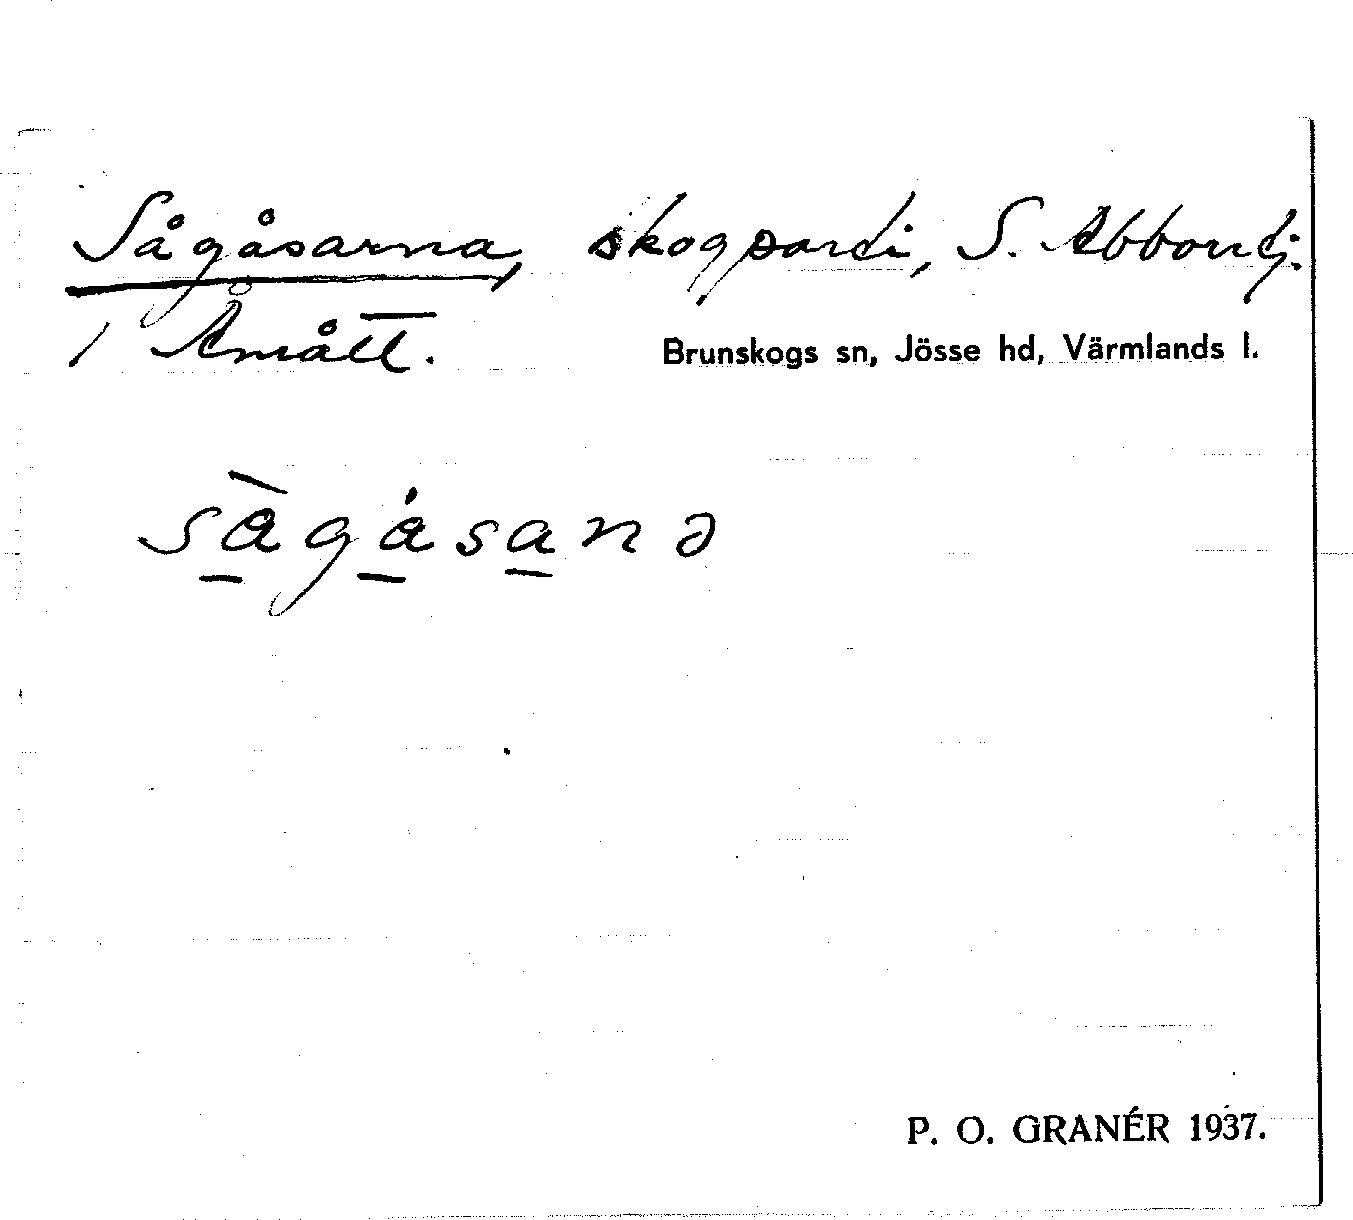 Sågåsarna, skogparti, S. Abborrtj.
i Åmått.
Brunskogs sn, Jösse hd, Värmlands l.
sàgásanə
P. O. GRANÉR 1937.